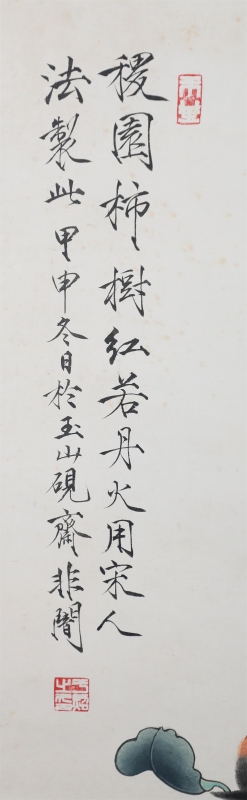 稷園柿樹紅若丹火用宋人
法製此甲申冬日於玉山硯齋非闇